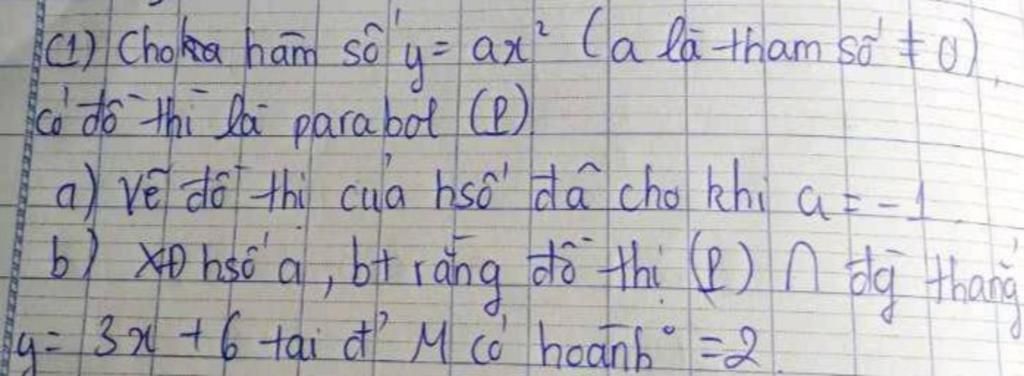 (1) Cho hàm số y = ax² (a là tham số ≠ 0)
có đồ thị là parabol (P)
a) Vẽ đồ thị của hsố đã cho khi a = -1
b) XĐ hsố a, bt rằng đồ thị (P) ∩ đg thẳng
y = 3x + 6 tại đ' M có hoành° = 2.